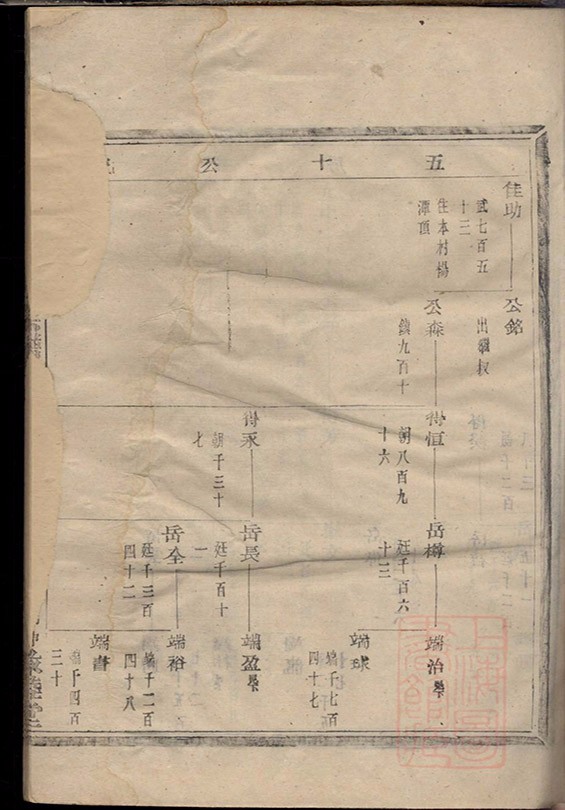 五十公
佳助
武七百五
十三
住本村楊
潭頂
公銘
出繼叔
公森
鎮九百十
得恒
朝八百九
十六
岳樽
廷千百六
十三
端治
端球
端千七百
四十七
得永
朝千三十
七
岳長
廷千百十
一
端盈
岳全
廷千三百
四十二
端裕
端千二百
四十八
端書
端千四百
三十